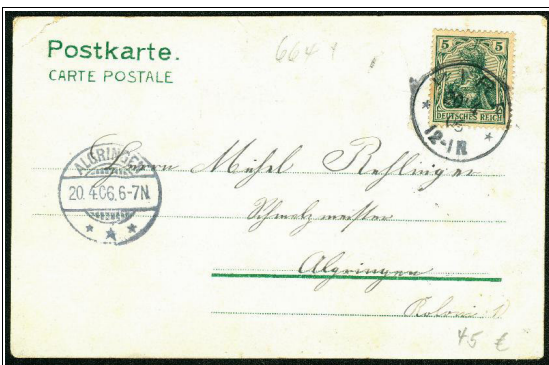 Postkarte.
CARTE POSTALE
664
5 5
DEUTSCHES REICH
12-1N
ALGRINGEN
20.4.06.6-7N
Herrn Michel Rehlinger
Schmelzmeister
Algringen
Kolonie
45 €